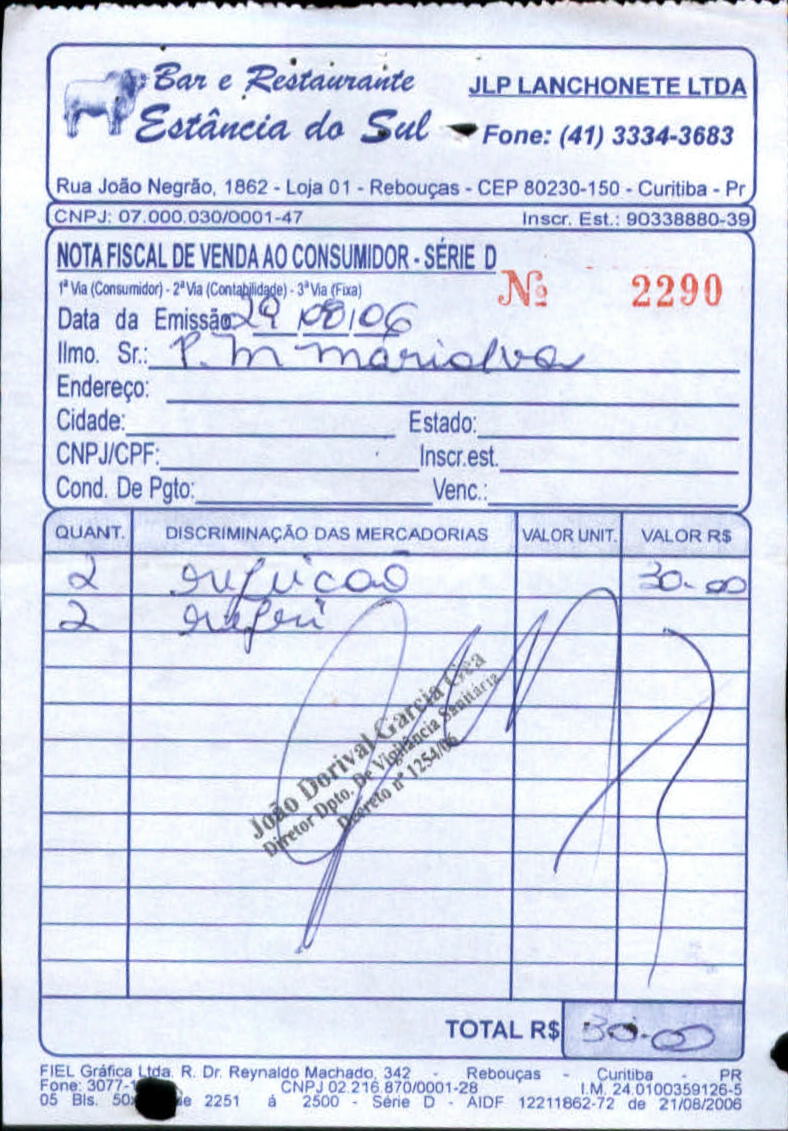 Bar e Restaurante
Estância do Sul
JLP LANCHONETE LTDA
Fone: (41) 3334-3683
Rua João Negrão, 1862 - Loja 01 - Rebouças - CEP 80230-150 - Curitiba - Pr
CNPJ: 07.000.030/0001-47 Inscr. Est.: 90338880-39
NOTA FISCAL DE VENDA AO CONSUMIDOR - SÉRIE D
1ª Via (Consumidor) - 2ª Via (Contabilidade) - 3ª Via (Fixa)
Nº 2290
Data da Emissão 29/08/06
Ilmo. Sr.: P. M marialva
Endereço:
Cidade: Estado:
CNPJ/CPF: Inscr.est.
Cond. De Pgto: Venc.:
QUANT. DISCRIMINAÇÃO DAS MERCADORIAS VALOR UNIT. VALOR R$
2 refeicão 30.00
2 refri
João Dorival Garcia Cea
Diretor Dpto. De Vigilância Sanitária
Decreto nº 1254/06
TOTAL R$ 30.00
FIEL Gráfica Ltda. R. Dr. Reynaldo Machado, 342 - Rebouças - Curitiba - PR
Fone: 3077-1 CNPJ 02.216.870/0001-28 I.M. 24.0100359126-5
05 Bls. 50x de 2251 á 2500 - Série D - AIDF 12211862-72 de 21/08/2006